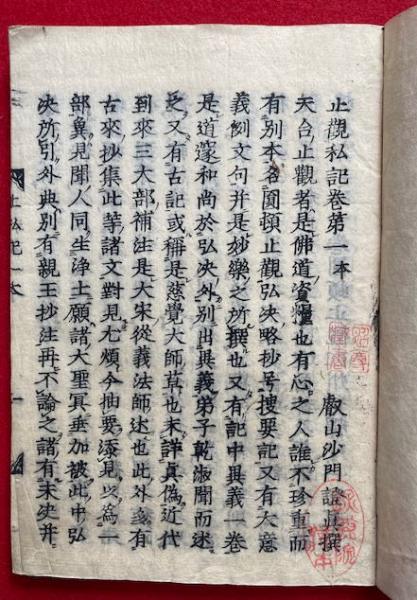 止觀私記卷第一本 叡山沙門 證眞撰
天台止觀者是佛道資糧也有心之人誰不珍重而
有別本名圓頓止觀弘決略抄号搜要記又有大意
義例文句并是妙樂之所撰也又有記中異義一卷
是道邃和尚於弘决外別出異義弟子乾淑聞而述
之又有古記或稱是慈覺大師草也未詳眞僞近代
到來三大部補注是大宋從義法師述也此外亦有
古來抄集此等諸文對見尤煩今抽要添見以為一
部冀見聞人同生浄土願諸大聖冥垂加被此中弘
决所引外典別有親王抄注再不論之諸有未决并
止弘記一本